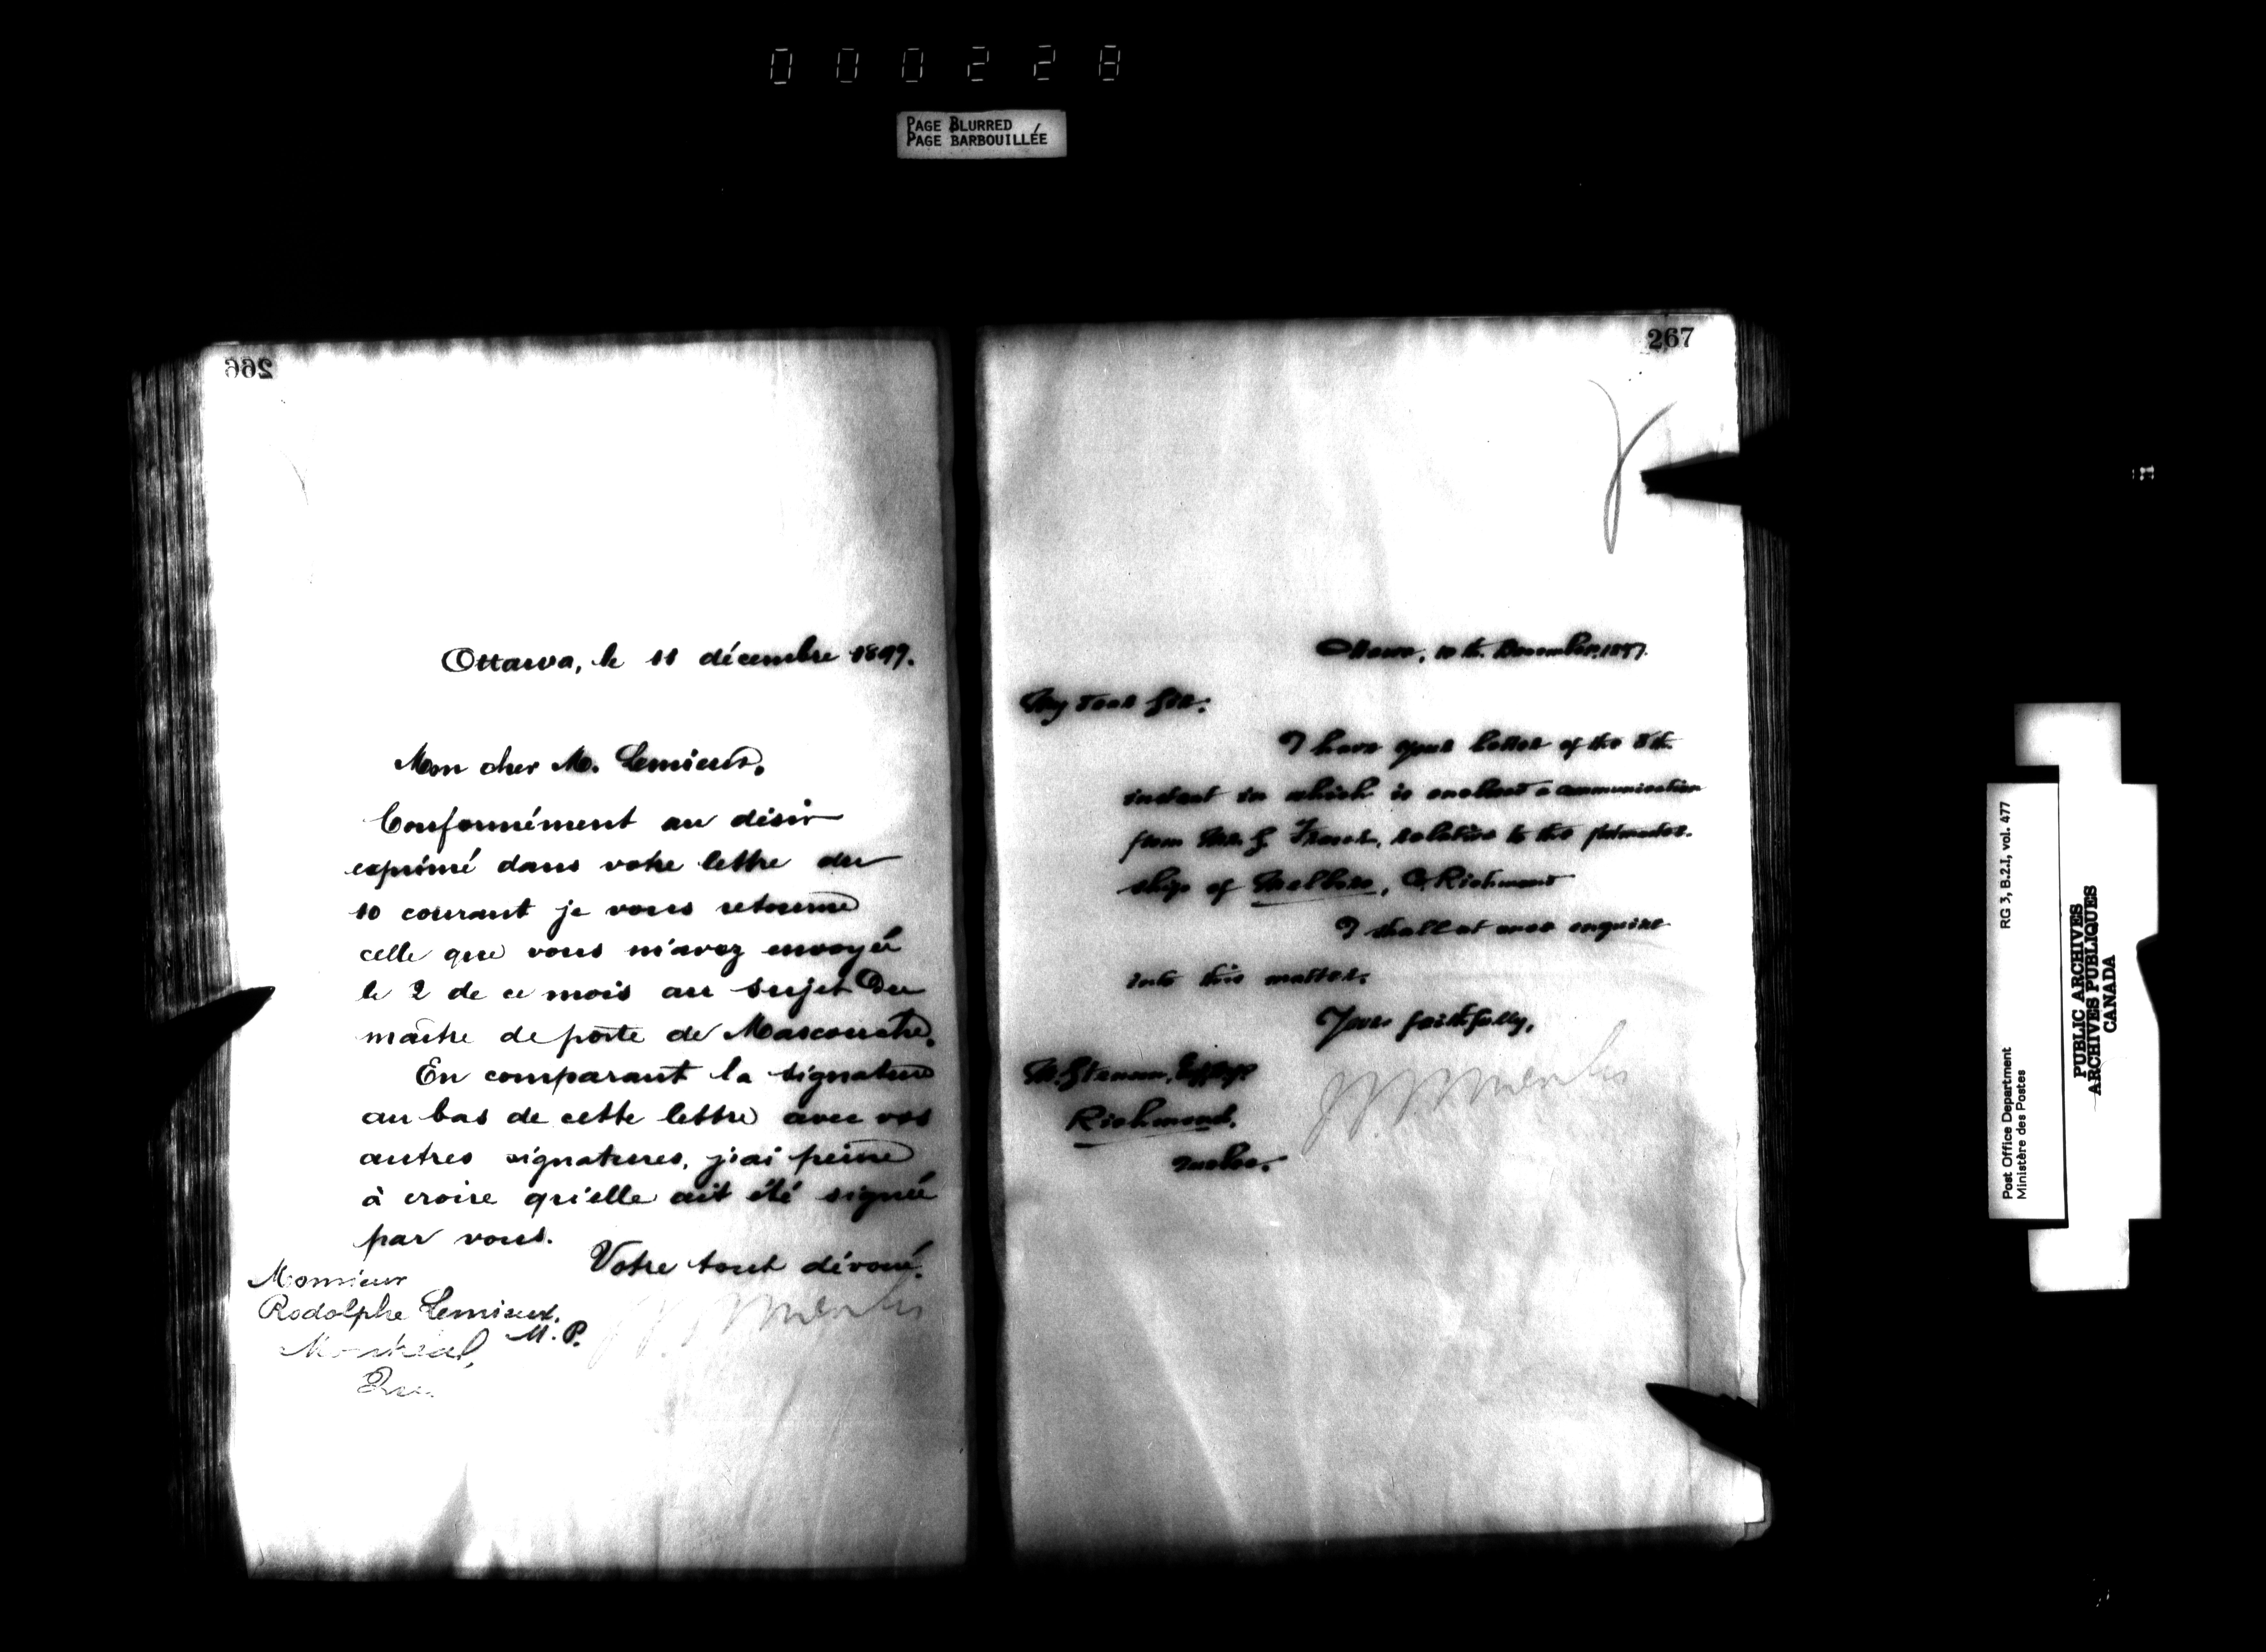 000228
PAGE BLURRED
PAGE BARBOUILLÉE
266
Ottawa, le 11 décembre 1897.
Mon cher M. Lemieux,
Conformément au désir
exprimé dans votre lettre du
10 courant je vous retourne
celle que vous m'avez envoyée
le 2 de ce mois au sujet du
maître de poste de Mascouche.
En comparant la signature
au bas de cette lettre avec vos
autres signatures, j'ai peine
à croire qu'elle ait été signée
par vous.
Votre tout dévoué.
Monsieur
Rodolphe Lemieux,
M. P.
Montréal,
Que.
267
Ottawa, 10th. December, 1897.
My dear Sir:
I have your letter of the 8th.
instant in which is enclosed a communication
from Mr. relative to the postmaster-
ship of Richmond
I shall at once enquire
into this matter.
Yours faithfully,
Richmond,
Quebec.
Post Office Department
Ministère des Postes
RG 3, B.2.I, vol. 477
PUBLIC ARCHIVES
ARCHIVES PUBLIQUES
CANADA